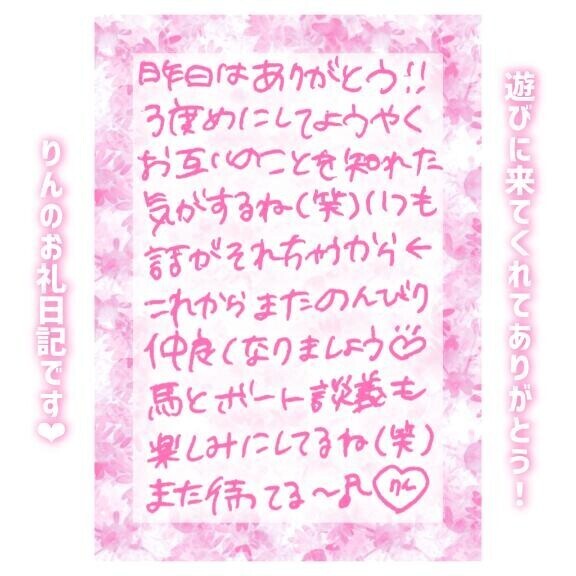 遊びに来てくれてありがとう！
昨日はありがとう!!
3度めにしてようやく
お互いのことを知れた
気がするね(笑)いつも
話がそれちゃうから←
これからまたのんびり
仲良くなりましょう♡
馬とボート談義も
楽しみにしてるね(笑)
また待ってる〜♪
りんのお礼日記です❤